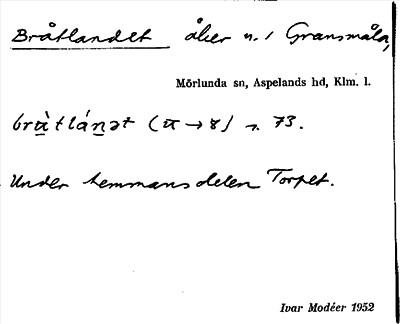 Bråtlandet åker n. i Gransmåla,
Mörlunda sn, Aspelands hd, Klm. l.
bràtlánət (ɑ → 8) 73.
Under hemmansdelen Torpet.
Ivar Modéer 1952